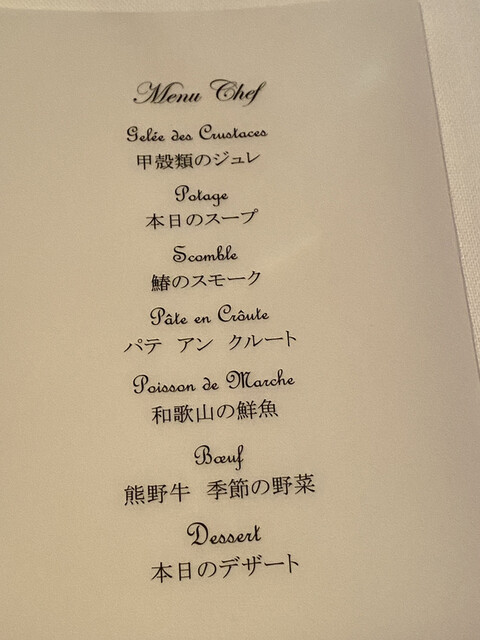 Menu Chef
Gelée des Crustaces
甲殻類のジュレ
Potage
本日のスープ
Scomble
鰆のスモーク
Pâte en Crôute
パテ アン クルート
Poisson de Marche
和歌山の鮮魚
Bœuf
熊野牛 季節の野菜
Dessert
本日のデザート